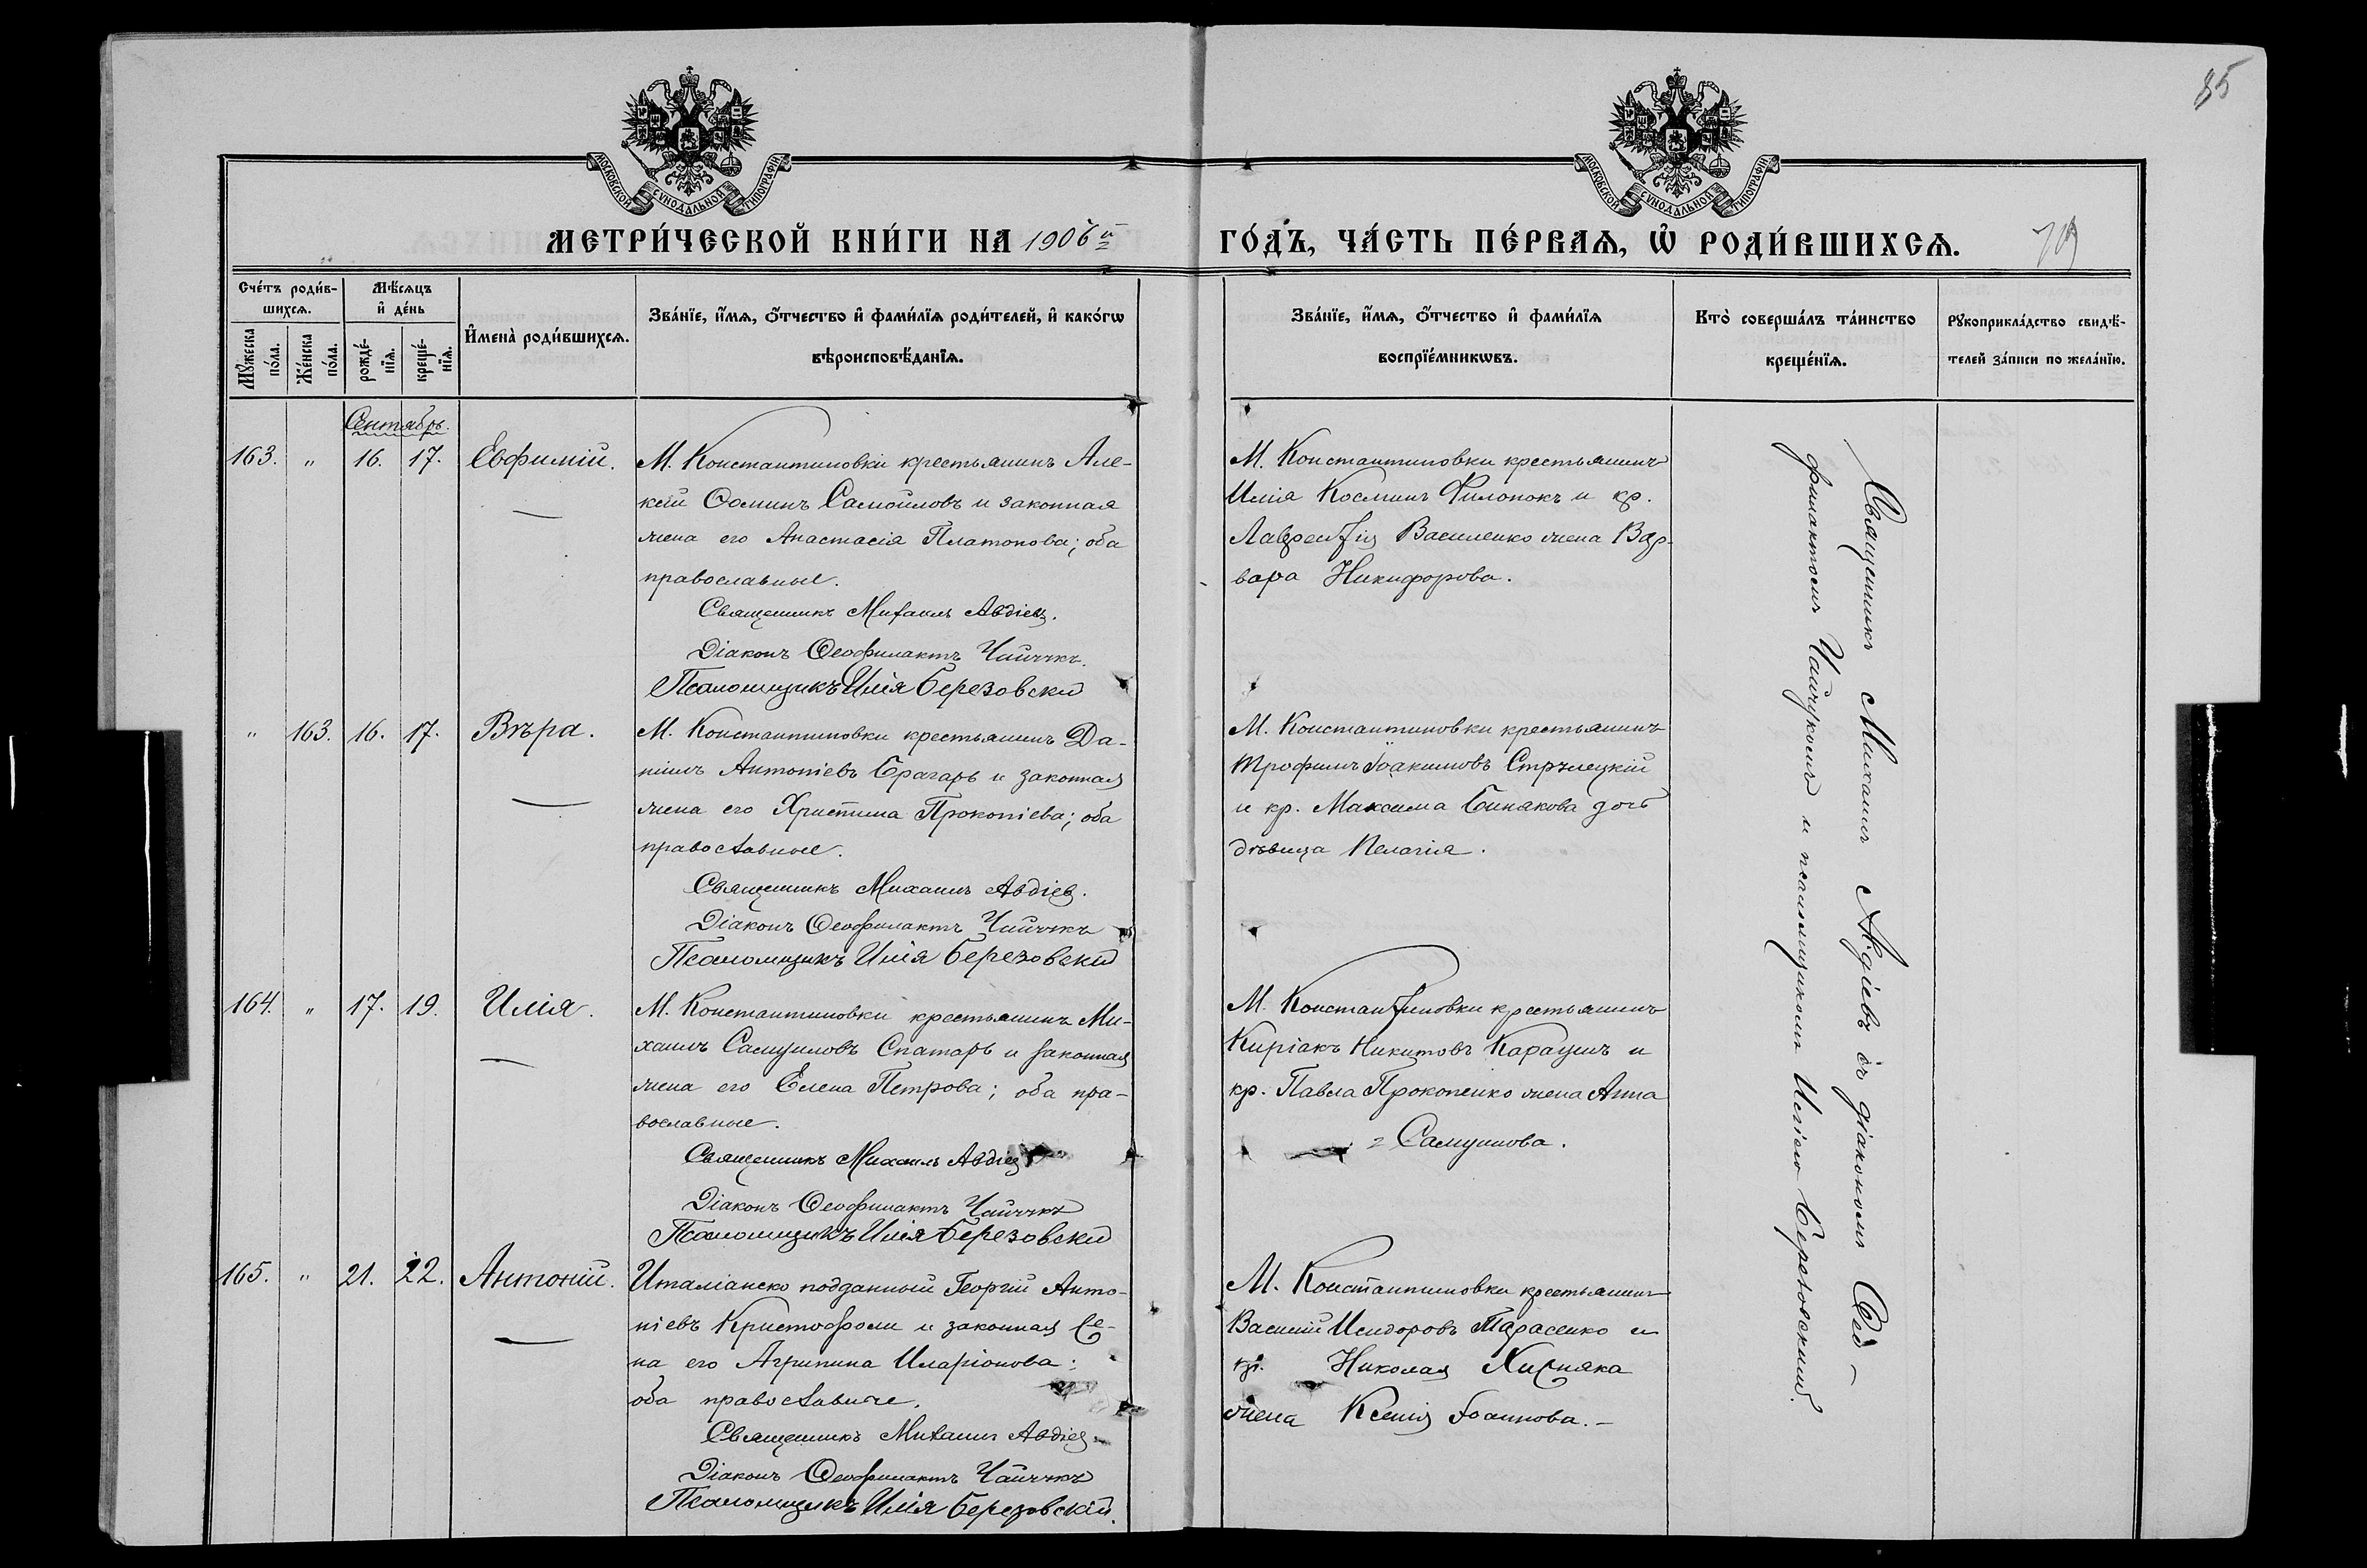 85
МОСКОВСКОЙ СУНОДАЛЬНОЙ ТИПОГРАФІИ
МОСКОВСКОЙ СУНОДАЛЬНОЙ ТИПОГРАФІИ
МЕТРИ́ЧЕСКОЙ КНИ́ГИ НА 1906й ГО́ДЪ, ЧА́СТЬ ПЕ́РВАѦ, Ѡ҆ РОДИ́ВШИХСѦ.
Сче́тъ роди́в-
шихсѧ.
Мꙋ́жеска по́ла.
Же́нска по́ла.
Мѣ́сѧцъ
и҆ де́нь
рожде́-
нїѧ.
креще́-
нїѧ.
И҆мена̀ роди́вшихсѧ.
Зва́нїе, и҆́мѧ, ѻ҆́тчество и҆ фами́лїѧ роди́телей, и҆ како́гѡ
вѣроисповѣ́данїѧ.
Зва́нїе, и҆́мѧ, ѻ҆́тчество и҆ фами́лїѧ
воспрїе́мникѡвъ.
Кто̀ соверша́лъ та́инство
креще́нїѧ.
Рꙋкоприкла́дство свидѣ́-
телей за́писи по жела́нїю.
Сентябрь.
163. " 16. 17. Евфимій.
М. Константиновки крестьянинъ Але-
ксій Ѳоминъ Самойловъ и законная
жена его Анастасія Платонова; оба
православные.
Священникъ Михаилъ Авдіевъ.
Діаконъ Ѳеофилактъ Чайчукъ.
Псаломщикъ Илія Березовскій
М. Константиновки крестьянинъ
Илія Косминъ Филонокъ и кр.
Лаврентія Василенко жена Вар-
вара Никифорова.
" 163. 16. 17. Вѣра.
М. Константиновки крестьянинъ Да-
ніилъ Антоніевъ Брагарь и законная
жена его Христина Прокопіева; оба
православные.
Священникъ Михаилъ Авдіевъ.
Діаконъ Ѳеофилактъ Чайчукъ
Псаломщикъ Илія Березовскій
М. Константиновки крестьянинъ
Трофимъ Іоакимовъ Стрѣлецкій
и кр. Максима Синякова дочь
дѣвица Пелагія.
164. " 17. 19. Илія.
М. Константиновки крестьянинъ Ми-
хаилъ Самуиловъ Спатарь и законная
жена его Елена Петрова; оба пра-
вославные.
Священникъ Михаилъ Авдіевъ
Діаконъ Ѳеофилактъ Чайчукъ
Псаломщикъ Илія Березовскій
М. Константиновки крестьянинъ
Киріакъ Никитовъ Караушъ и
кр. Павла Прокопенко жена Анна
Самуилова.
165. " 21. 22. Антоній.
Италіанско подданный Георгій Анто-
ніевъ Кристофоли и законная же-
на его Агрипина Иларіонова;
оба православные.
Священникъ Михаилъ Авдіевъ
Діаконъ Ѳеофилактъ Чайчукъ
Псаломщикъ Илія Березовскій.
М. Константиновки крестьянинъ
Василій Исидоровъ Тарасенко и
кр. Николая Хирняка
жена Ксенія Іоаннова.-
Священникъ Михаилъ Авдіевъ съ діакономъ Ѳео-
филактомъ Чайчукомъ и псаломщикомъ Иліею Березовскимъ.